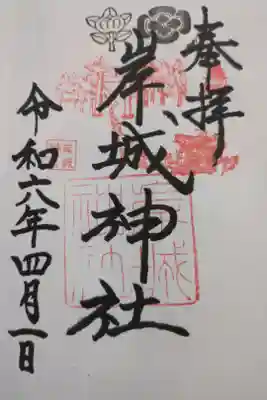 奉拝
岸城神社
令和六年四月一日